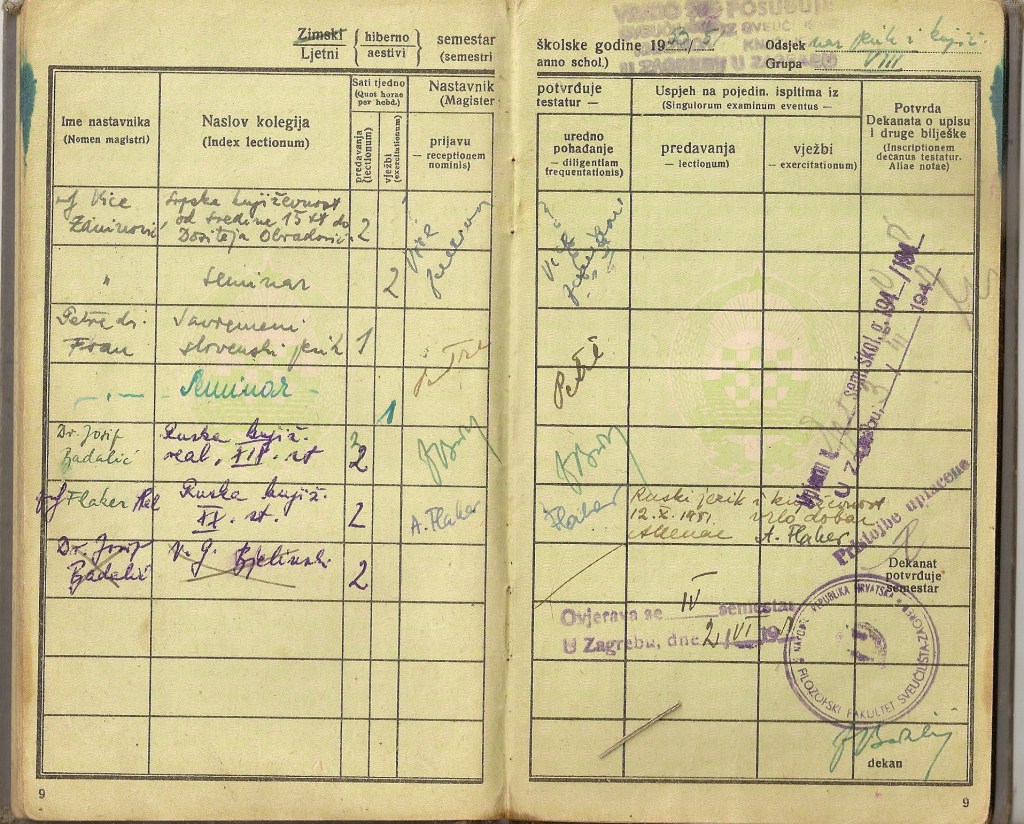 Zimski
Ljetni
hiberno
aestivi
semestar
(semestri
Ime nastavnika
(Nomen magistri)
Naslov kolegija
(Index lectionum)
Sati tjedno
(Quot horae
per hebd.)
predavanja
(lectionum)
vježbi
(exercitationum)
Nastavnik
(Magister
prijavu
— receptionem
nominis)
Vice
Zaninović
Srpska književnost
od sredine 15 st do
Dositeja Obradovića
2
"
seminar
2
Petre dr.
Fran
Savremeni
slovenski jezik
1
Petre
Seminar
1
Dr. Josip
Badalić
Ruska knjiž.
real, XIX. st
2
Flaker
Ruska knjiž.
XX. st.
2
A. Flaker
Dr. Josip
Badalić
V. G. Bjelinski
2
9
školske godine 19
anno schol.)
Odsjek
Grupa VIII
U ZAGREBU
potvrđuje
testatur —
uredno
pohađanje
— diligentiam
frequentationis)
Uspjeh na pojedin. ispitima iz
(Singulorum examinum eventus —
predavanja
— lectionum)
vježbi
— exercitationum)
Potvrda
Dekanata o upisu
i druge bilješke
(Inscriptionem
decanus testatur.
Aliae notae)
Petre
Flaker
Ruski jezik i književnost
12. X. 1951. vrlo dobar
A. Flaker
Upisan u sem. škol. g. 194 /194
U Zagrebu, 194
Pristojbe uplaćene
Dekanat
potvrđuje
semestar
Ovjerava se IV semestar
U Zagrebu, dne 2 VI 19
NARODNA REPUBLIKA HRVATSKA
FILOZOFSKI FAKULTET SVEUČILIŠTA-ZAGREB
dekan
9